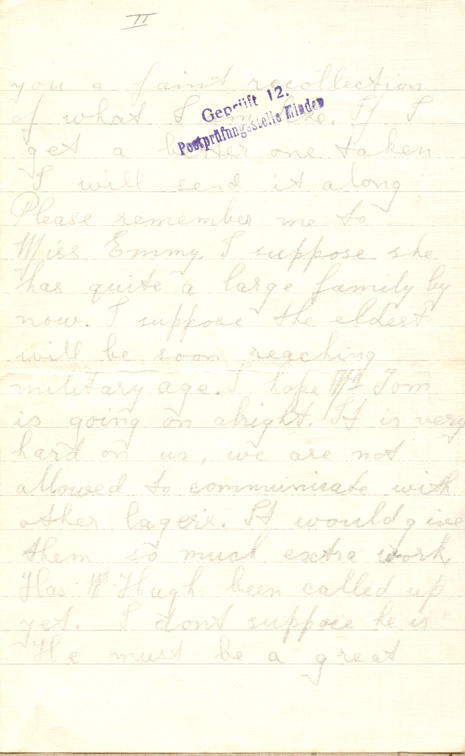 II
you a faint recollection
of what I like. If I
get a better one taken
I will send it along
Please remember me to
Miss Emmy. I suppose she
has quite a large family by
now. I suppose the eldest
will be soon reaching
military age. I hope Mr Tom
is going on alright. It is very
hard on us, we are not
allowed to communicate with
other lagers. It would give
them so much extra work.
Has Mr Hugh been called up
yet. I don't suppose he is
He must be a great
Geprüft 12.
Postprüfungsstelle Minden